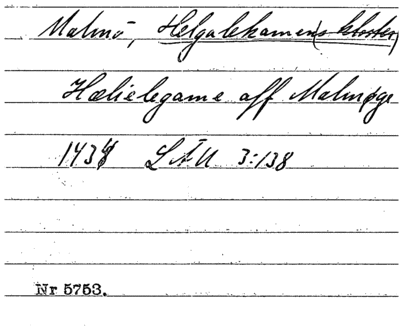 Malmö, Helgalekamens (kloster)
Helielegame aff Malmøge
1434 LÄU 3:138
Nr 5753.